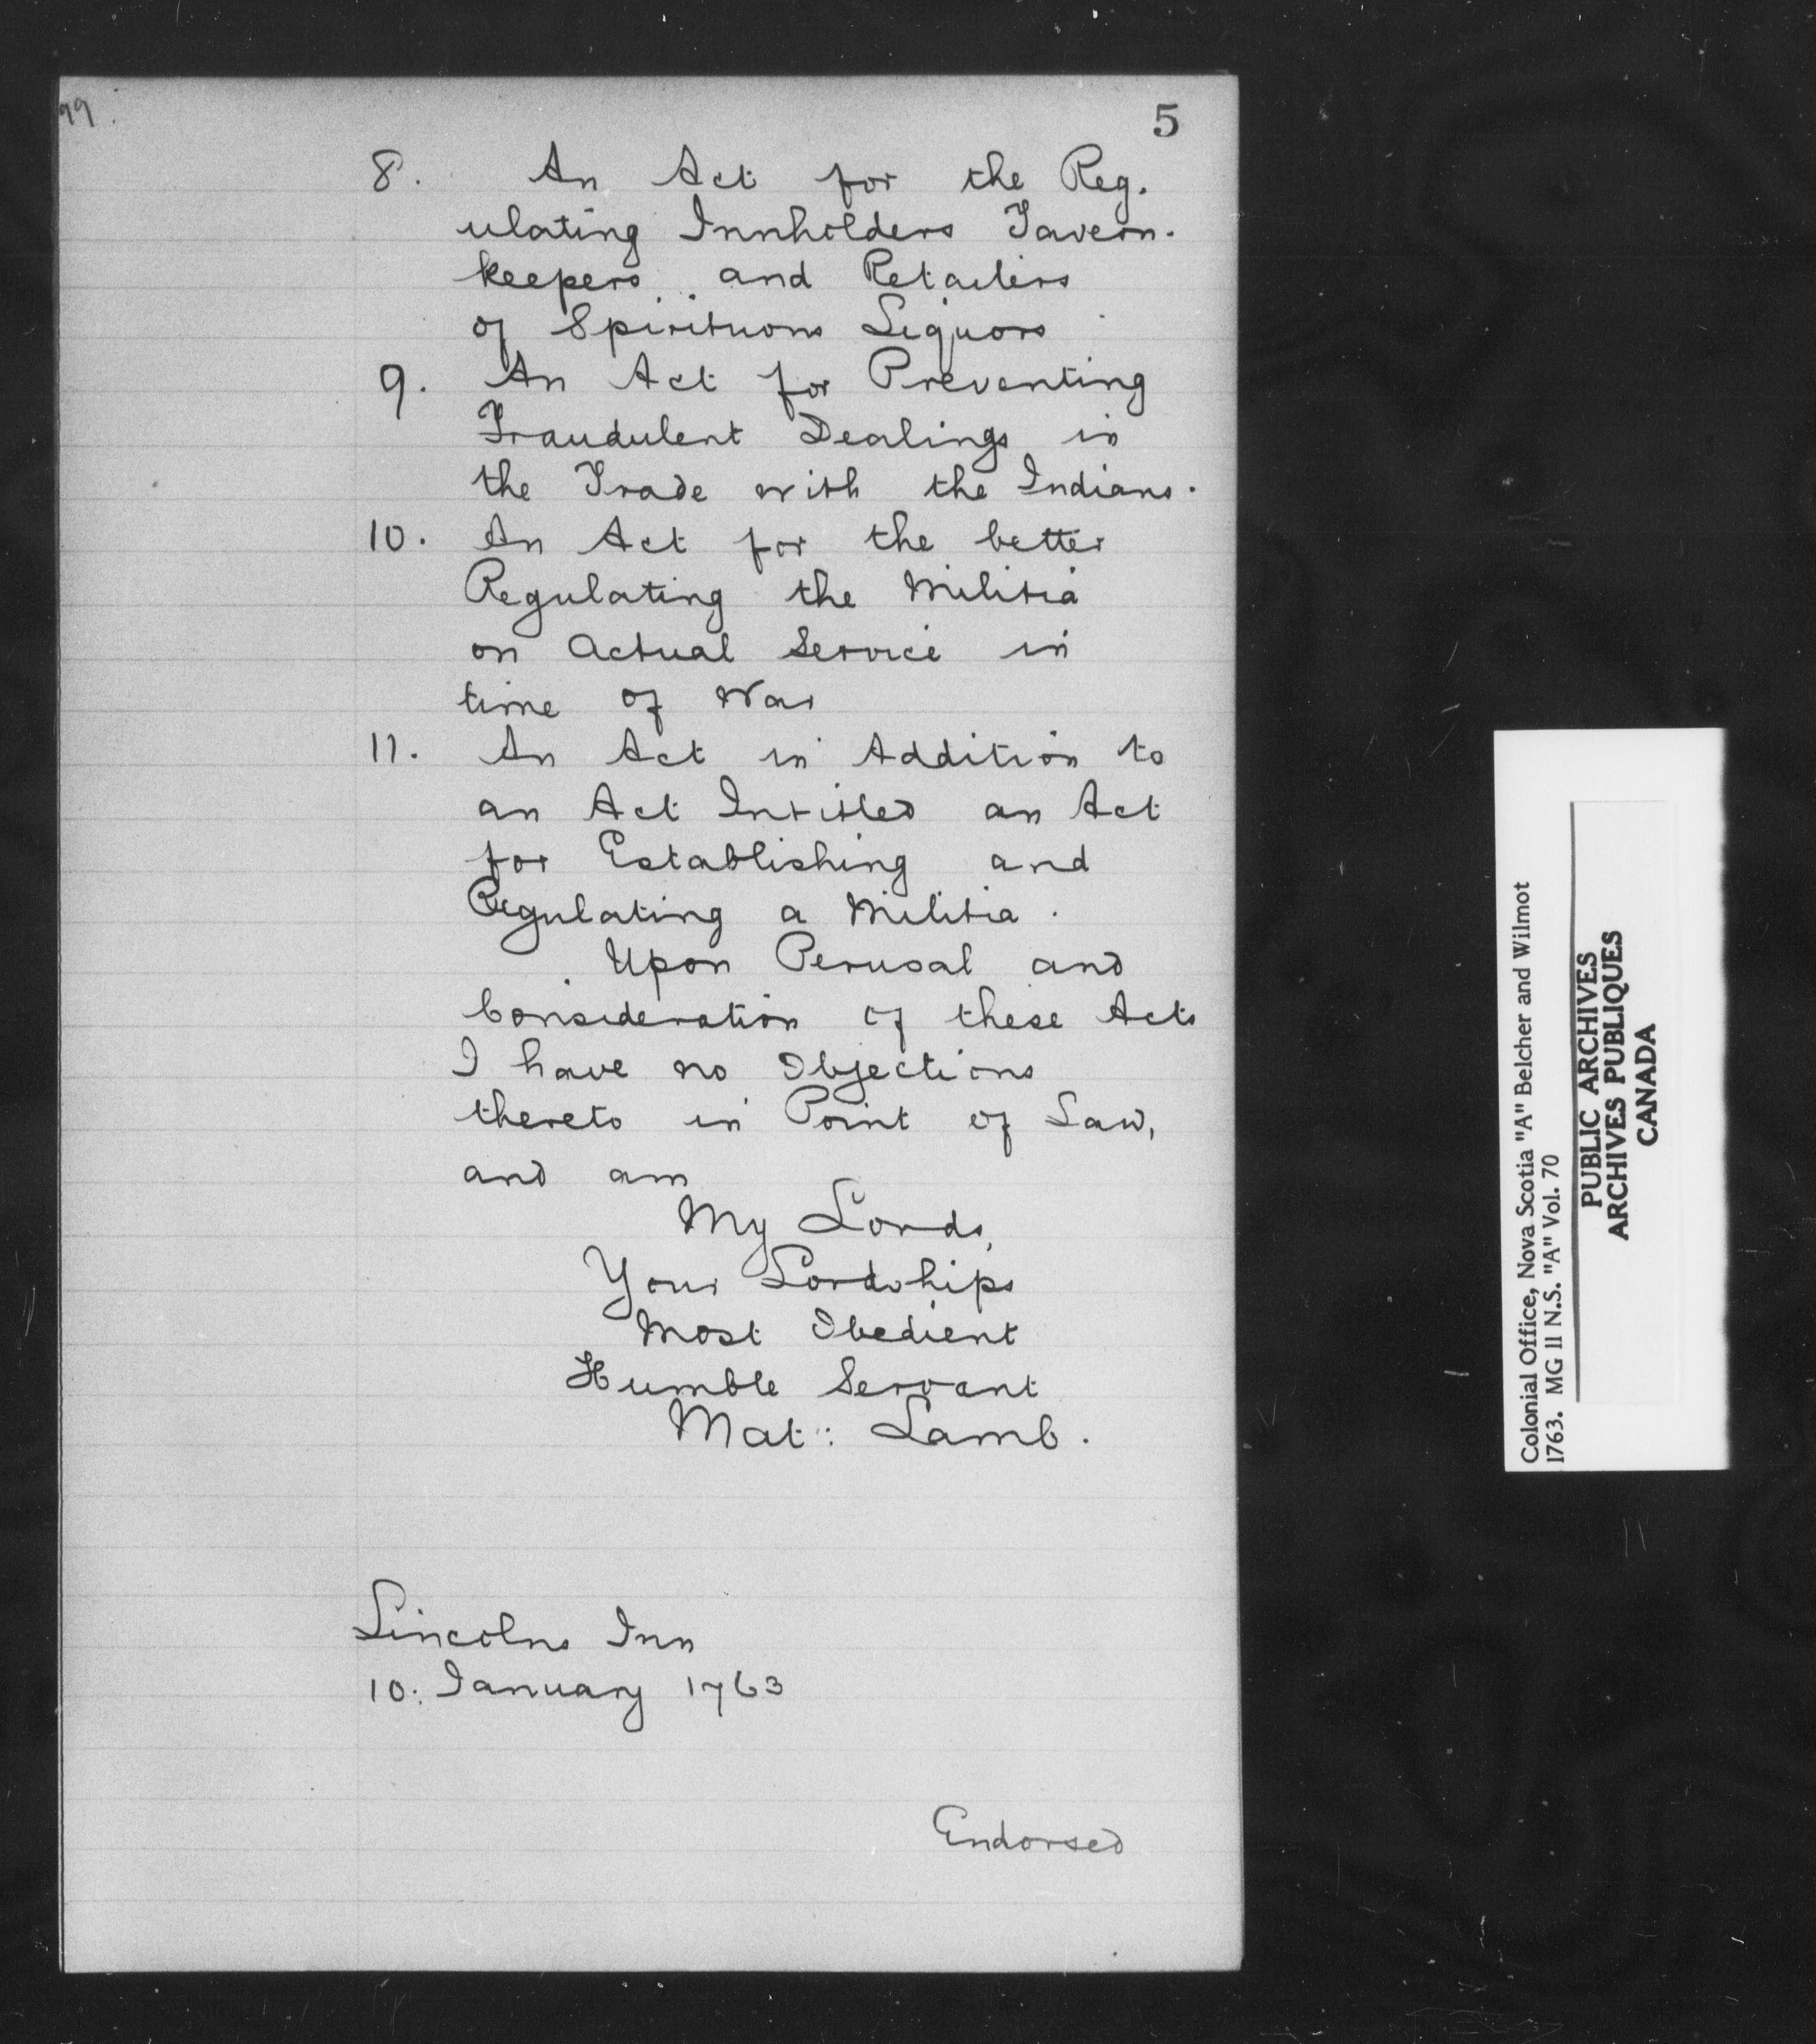 99.
5
8. An Act for the Reg.
ulating Innholders Tavern.
keepers and Retailers
of Spirituous Liquors
9. An Act for Preventing
Fraudulent Dealings in
the Trade with the Indians.
10. An Act for the better
Regulating the Militia
on Actual Service in
time of War
11. An Act in Addition to
an Act Intitled an Act
for Establishing and
Regulating a Militia.
Upon Perusal and
Consideration of these Acts
I have no Objections
thereto in Point of Law,
and am
My Lords,
Your Lordships
Most Obedient
Humble Servant
Mat: Lamb.
Lincolns Inn
10. January 1763
Endorsed
Colonial Office, Nova Scotia "A" Belcher and Wilmot
1763. MG II N.S. "A" Vol. 70
PUBLIC ARCHIVES
ARCHIVES PUBLIQUES
CANADA